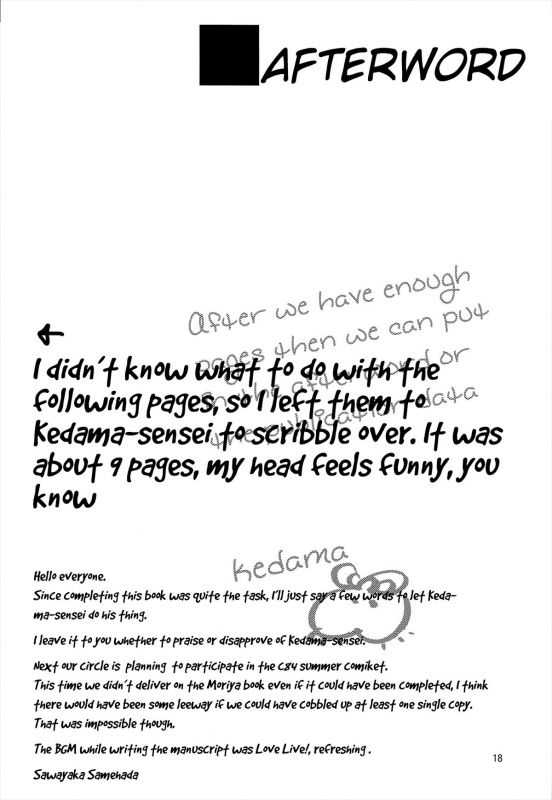 AFTERWORD
After we have enough
pages then we can put
in the afterword or
the publication data
←
I didn't know what to do with the
following pages, so I left them to
Kedama-sensei to scribble over. It was
about 9 pages, my head feels funny, you
know
kedama
Hello everyone.
Since completing this book was quite the task, I'll just say a few words to let Keda-
ma-sensei do his thing.
I leave it to you whether to praise or disapprove of Kedama-sensei.
Next our circle is planning to participate in the C84 summer comiket.
This time we didn't deliver on the Moriya book even if it could have been completed, I think
there would have been some leeway if we could have cobbled up at least one single copy.
That was impossible though.
The BGM while writing the manuscript was Love Live!, refreshing .
Sawayaka Samehada
18